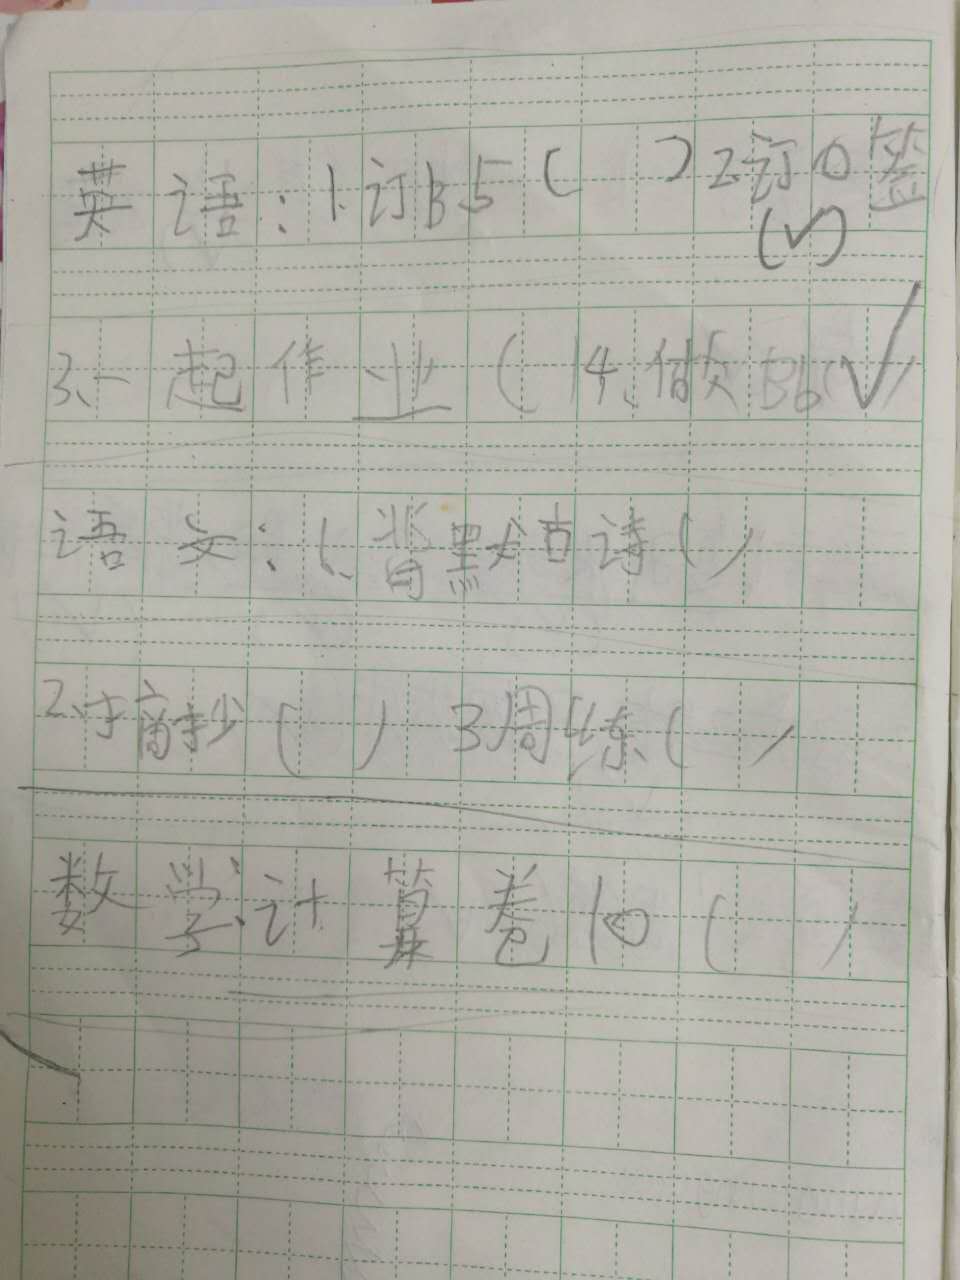 英语：1.订B5（ ）2.订0签
（√）
3、一起作业（ ）4、做B6（√）
语文：1、背默古诗（ ）
2、才摘抄（ ）3周练（ ）
数学、计算卷10（ ）